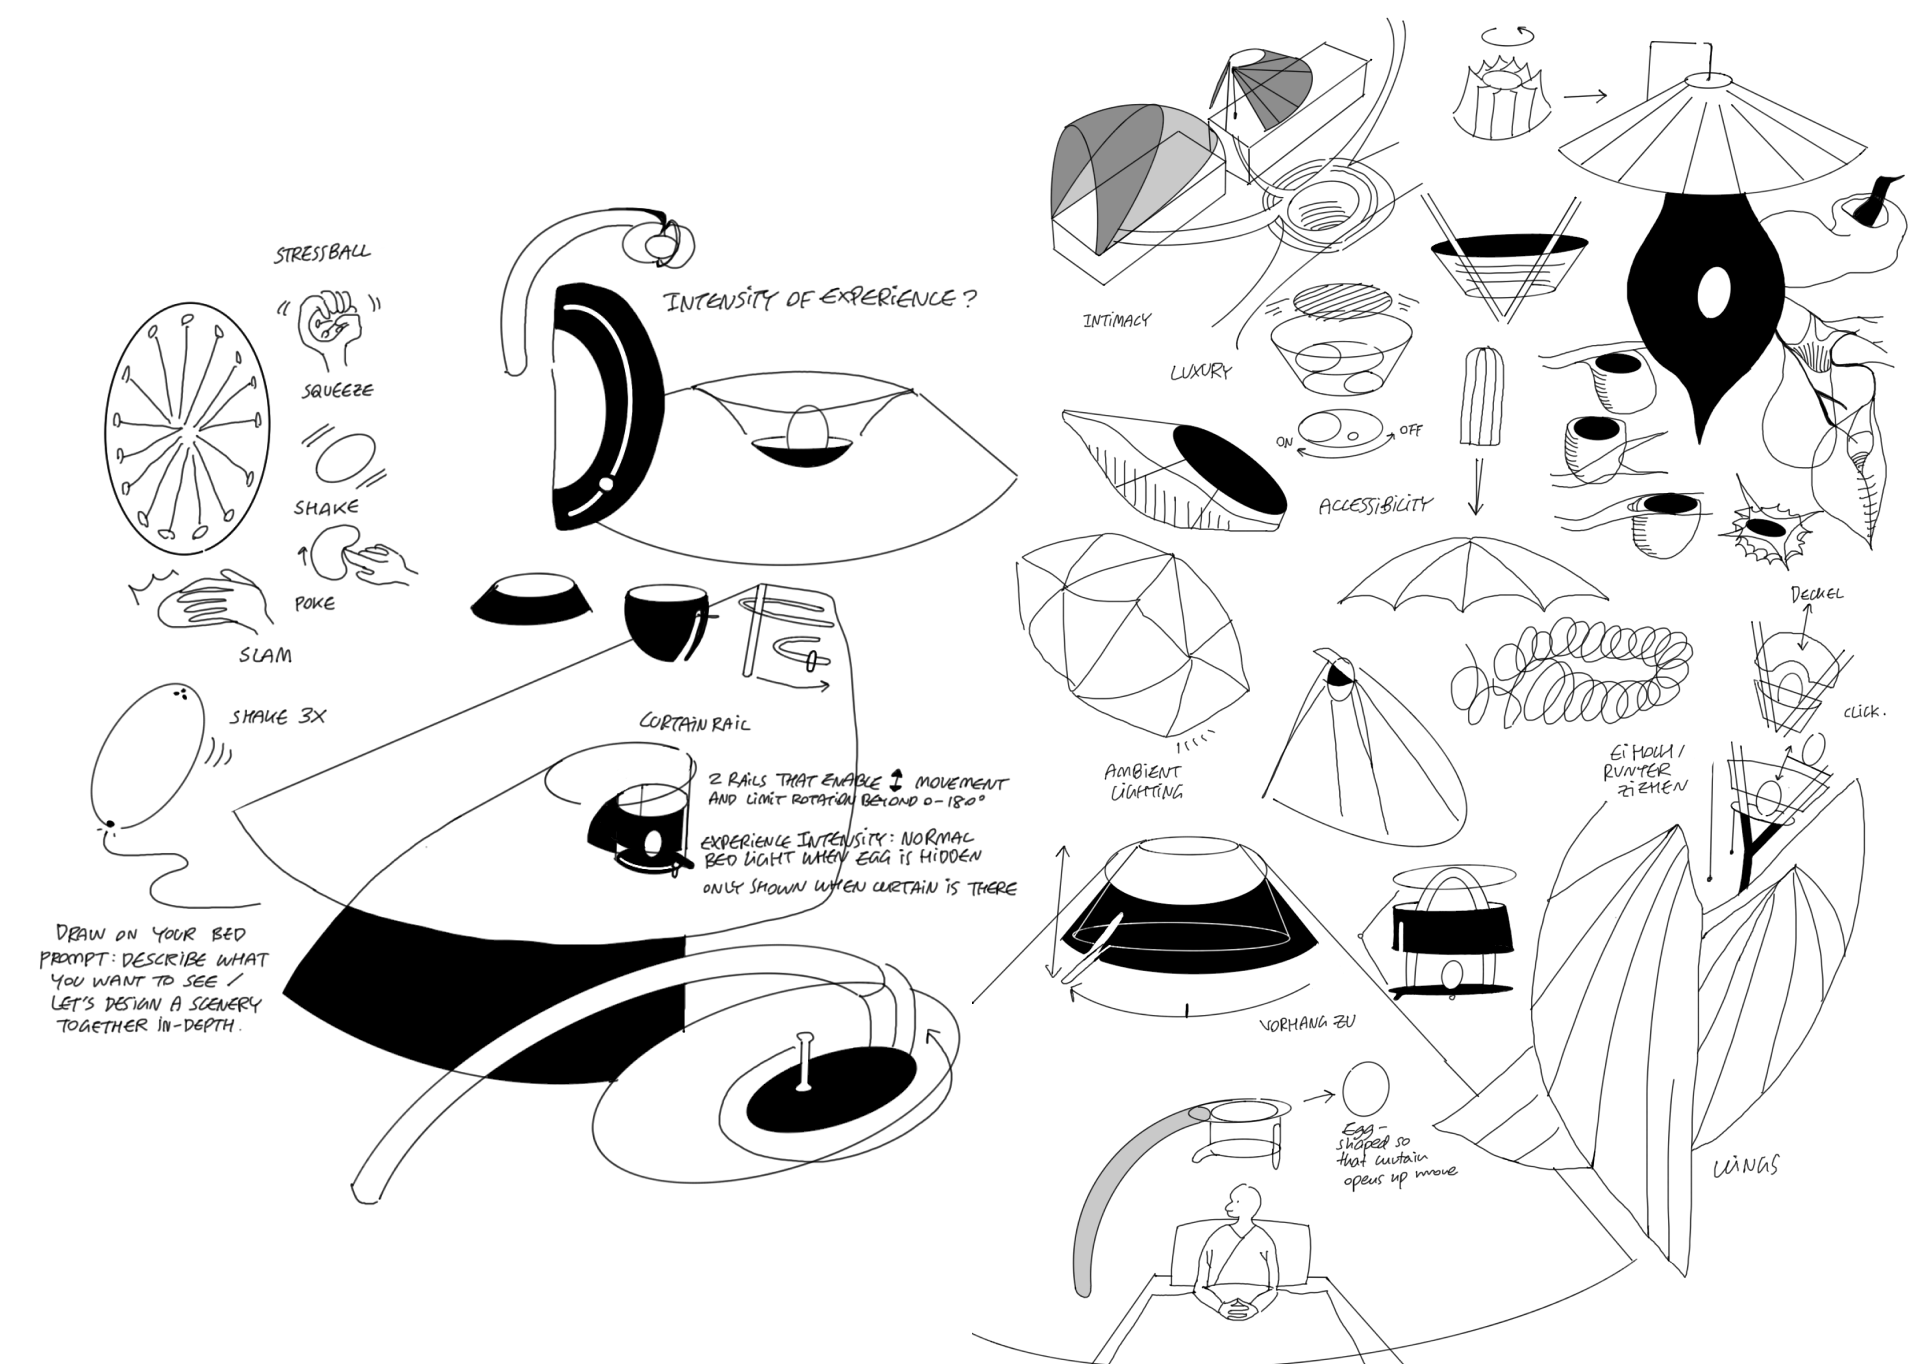 STRESSBALL
SQUEEZE
SHAKE
POKE
SLAM
SHAKE 3X
DRAW ON YOUR BED
PROMPT: DESCRIBE WHAT
YOU WANT TO SEE /
LET'S DESIGN A SCENERY
TOGETHER IN-DEPTH.
INTENSITY OF EXPERIENCE?
CURTAIN RAIL
2 RAILS THAT ENABLE ↕ MOVEMENT
AND LIMIT ROTATION BEYOND 0-180°
EXPERIENCE INTENSITY: NORMAL
BED LIGHT WHEN EGG IS HIDDEN
ONLY SHOWN WHEN CURTAIN IS THERE
INTIMACY
LUXURY
ON
OFF
ACCESSIBILITY
AMBIENT
LIGHTING
DECKEL
CLICK.
EI HOCH /
RUNTER
ZIEHEN
VORHANG ZU
Egg-
shaped so
that curtain
opens up more
WINGS